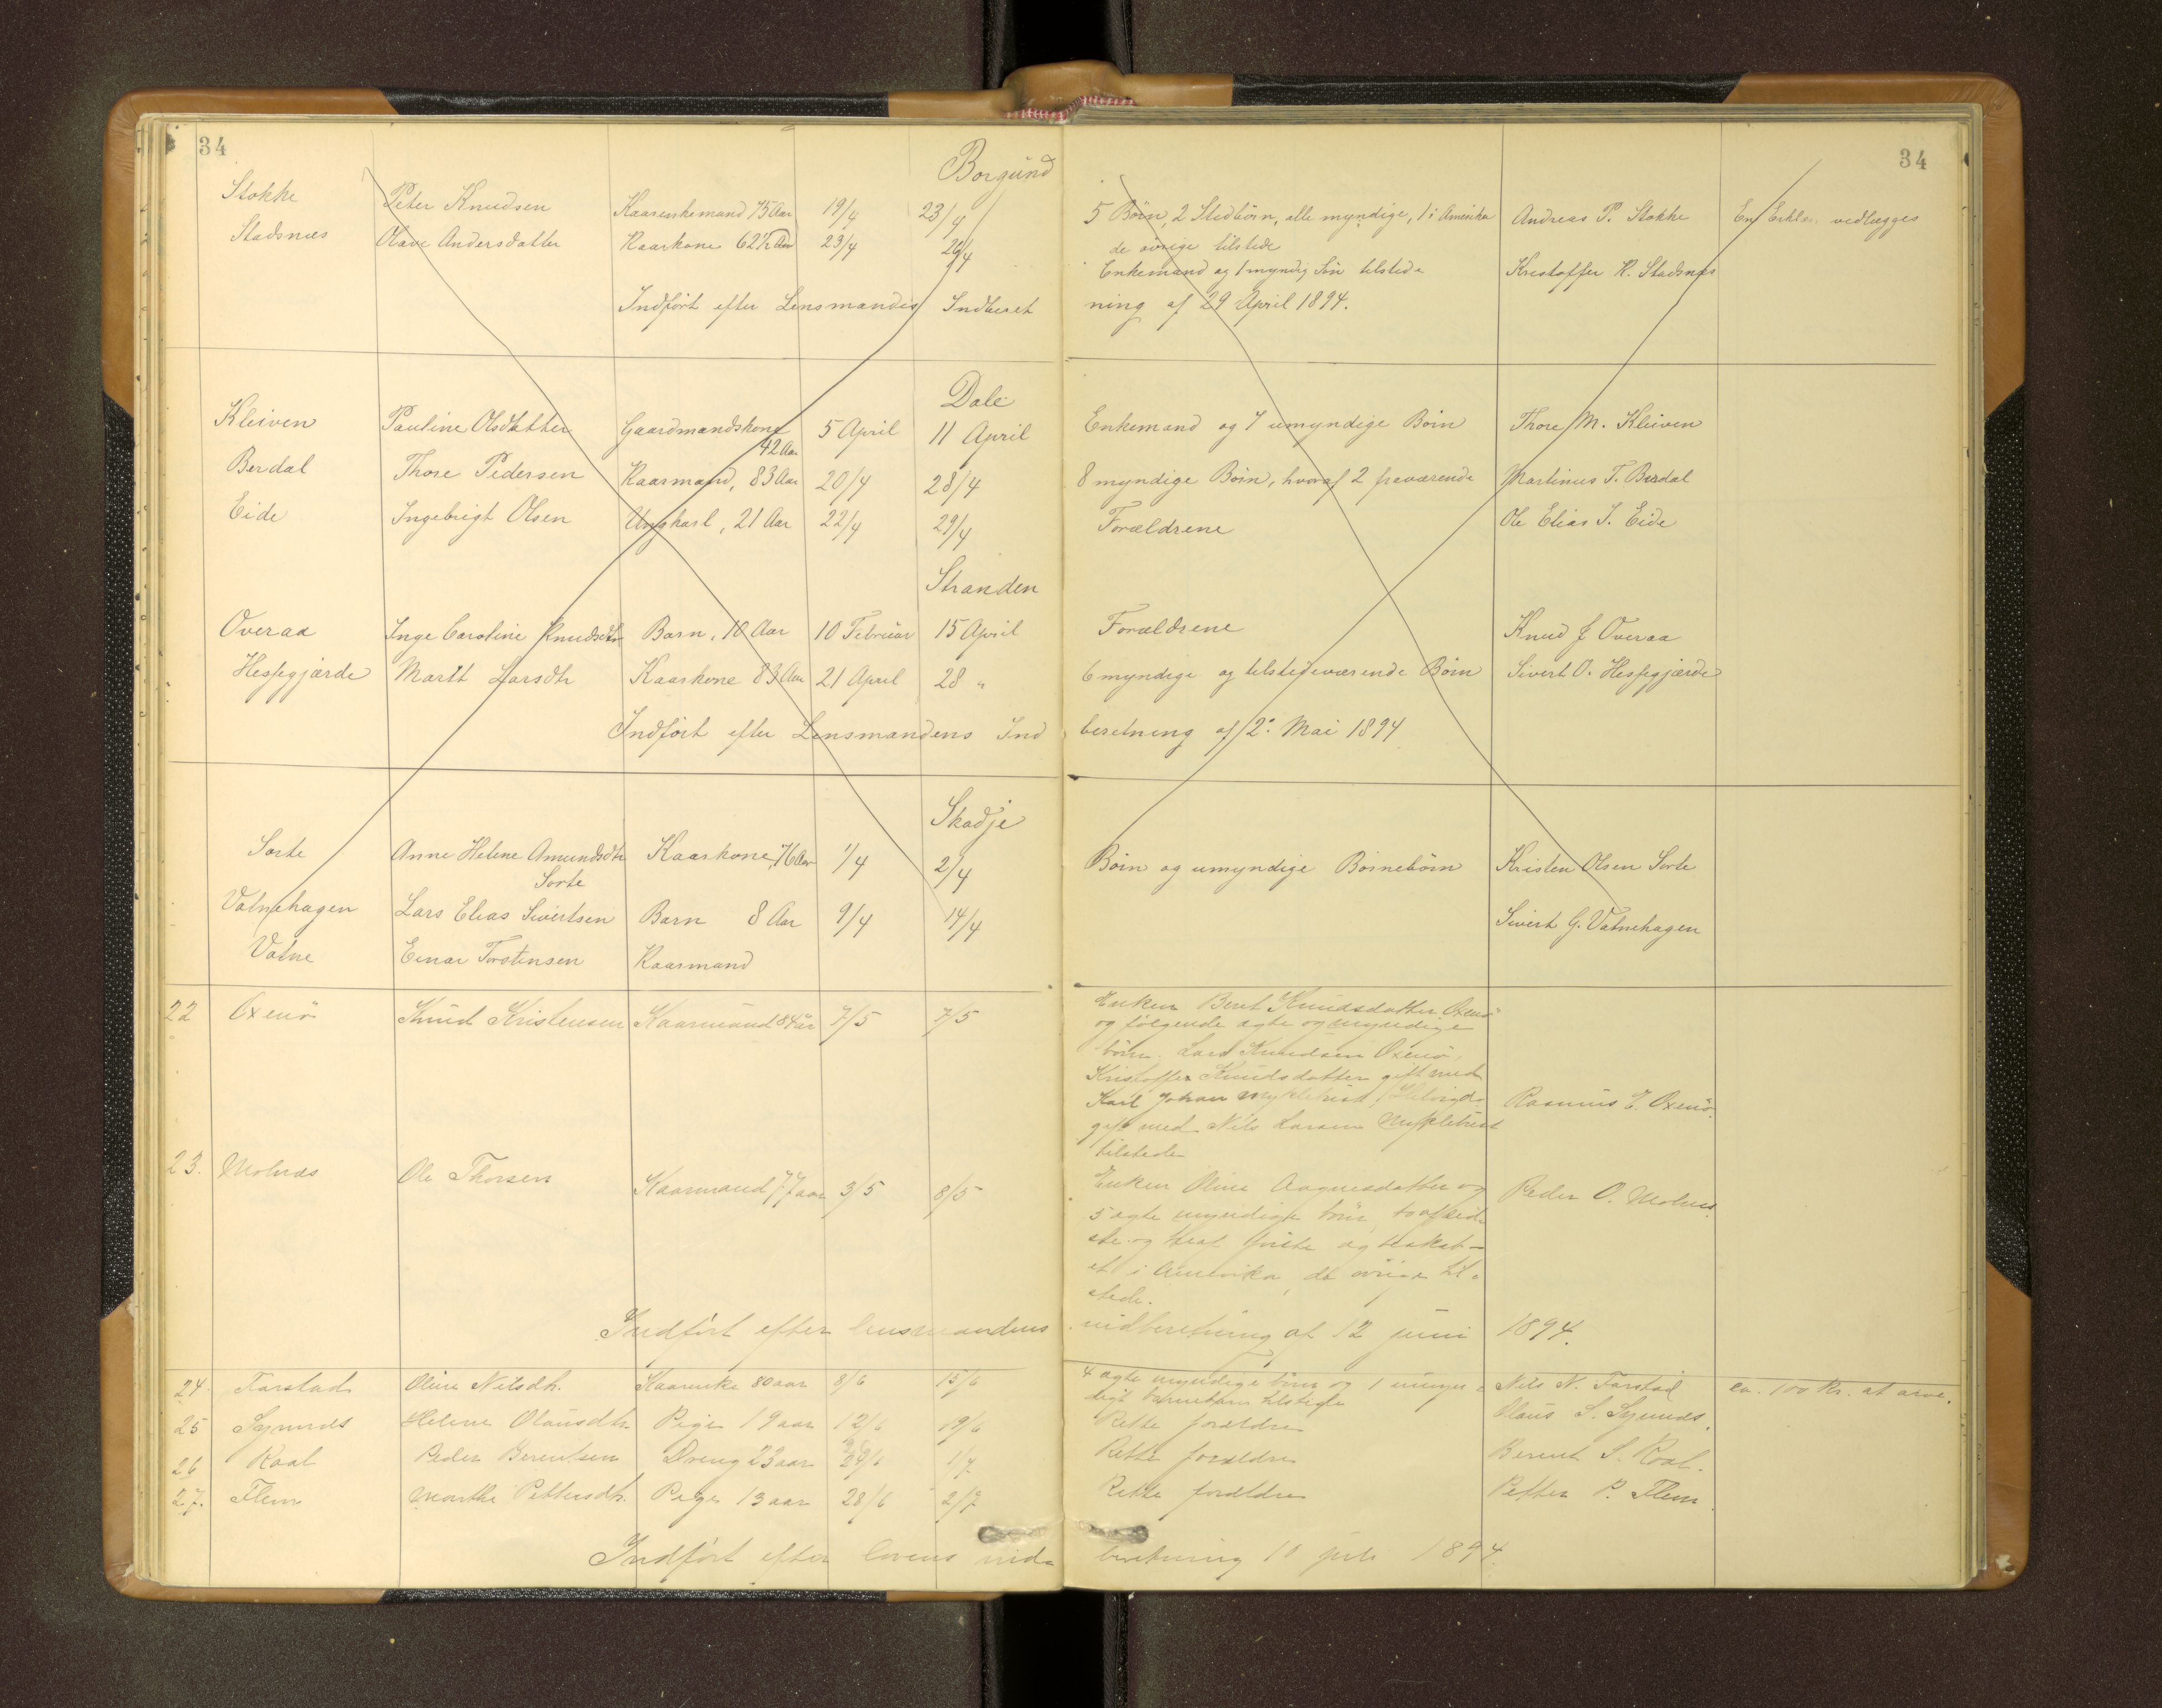 34
34
Borgund
Stokke Peter Knudsen Kaarenkemand 75 Aar 19/4 23/4 5 Börn, 2 Stedbörn, alle myndige, 1 i Amerika Andreas P. Stokke En Erklær. vedlægges
de övrige tilstede
Stadsnæs Olave Andersdatter Kaarkone 62½ Aar 23/4 26/4 Enkemand og 1 myndig Sön tilstede Kristoffer K. Stadsnæs
Indfört efter Lensmandens Indberet ning af 29 April 1894.
Dale
Kleiven Pauline Olsdatter Gaardmandskone 42 Aar 5 April 11 April Enkemand og 7 umyndige Börn Thore M. Kleiven
Berdal Thore Pedersen Kaarmand, 83 Aar 20/4 28/4 8 myndige Börn, hvoraf 2 fraværende Martinus T. Berdal
Eide Ingebrigt Olsen Ungkarl, 21 Aar 22/4 29/4 Forældrene Ole Elias I. Eide
Stranden
Overaa Inge Caroline Knudsdtr Barn, 10 Aar 10 Februar 15 April Forældrene Knud J Overaa
Hessegjærde Marit Larsdtr Kaarkone 83 Aar 21 April 28 " 6 myndige og tilstedeværende Börn Sivert O. Hessegjærde
Indfört efter Lensmandens Ind beretning af 2: Mai 1894
Skodje
Sorte Anne Helene Amundsdtr Kaarkone, 76 Aar 1/4 2/4 Börn og umyndige Börnebörn Kristen Olsen Sorte
Sorte
Vatnehagen Lars Elias Sivertsen Barn 8 Aar 9/4 14/4 Sivert G. Vatnehagen
Vatne Einar Torstensen Kaarmand
22 Oxenö Knud Kristensen Kaarmand 84 aar 7/5 7/5 Enken Beret Knudsdatter Oxenö
og følgende ægte og myndige
börn. Lars Knudsen Oxenö,
Kristoffer Knudsdatter gift med
Karl Johan Myklebust, Rasmus E. Oxenö.
gift med Nils Larsen Myklebust
tilstede
23. Molnæs Ole Thorsen Kaarmand 77 aar 3/5 8/5 Enken Oline Aagnesdatter og Peder O. Molnes.
5 ægte myndige börn,
et i Amerika, de övrige til-
stede.
Indfört efter lensmandens indberetning af 12 juni 1894.
24. Farstad Oline Nilsdtr. Kaarenke 80 aar 8/6 15/6 4 ægte myndige börn og 1 umyn- Nils N. Farstad ca. 100 Kr. at arve.
digt barnebarn tilstede
25 Synnes Helene Olausdtr Pige 19 aar 12/6 19/6 Rette forældre Olaus S. Synnes.
26 Roal Peder Berentsen Dreng 23 aar 26/6 1/7 Rette forældre Berent S. Roal.
27. Flem Marthe Pettersdtr. Pige 13 aar 28/6 2/7 Rette forældre Petter P. Flem.
Indfört efter lovens indberetning 10 juli 1894.